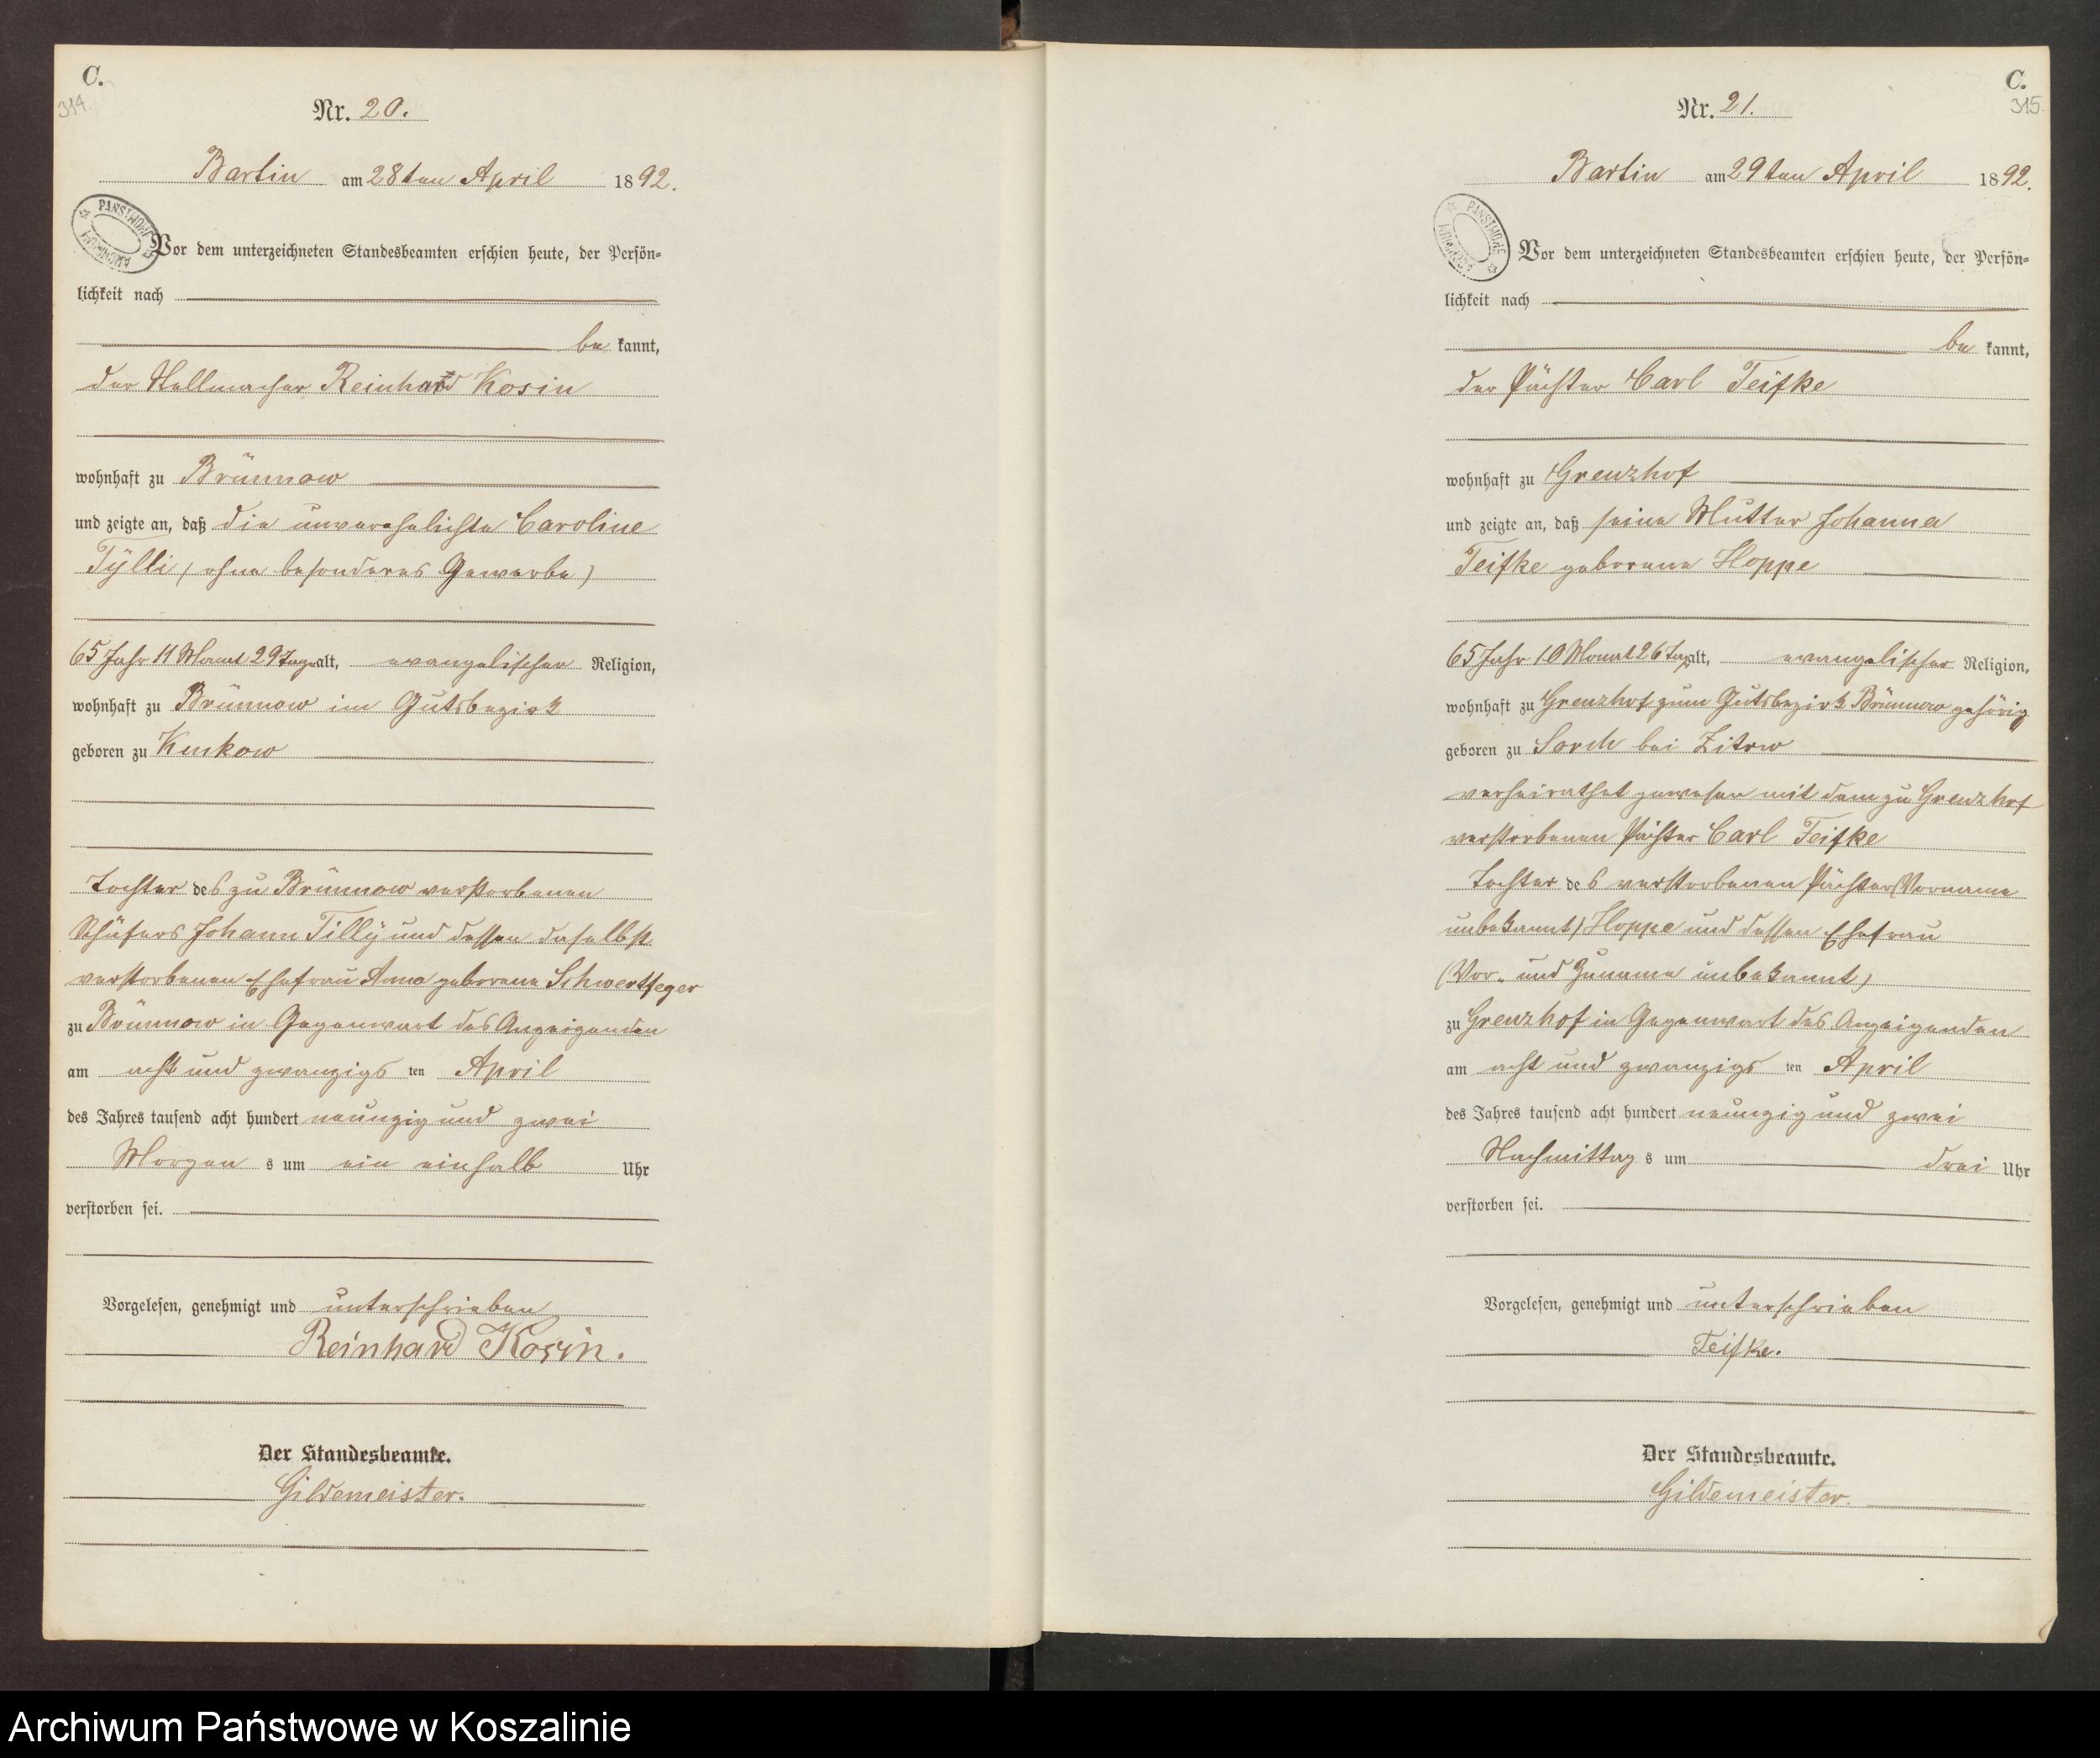 C.
314.
Nr. 20.
Bartin am 28ten April 1892.
PAŃSTWOWE ARCHIWUM
Vor dem unterzeichneten Standesbeamten erschien heute, der Persön-
lichkeit nach
be kannt,
der Stellmacher Reinhard Kosin
wohnhaft zu Brünnow
und zeigte an, daß die unverehelichte Caroline
Tÿlli, (ohne besonderes Gewerbe)
65 Jahr 11 Monat 29 Tage alt, evangelischer Religion,
wohnhaft zu Brünnow im Gutsbezirk
geboren zu Kuskow
Tochter des zu Brünnow verstorbenen
Schäfers Johann Tillÿ und dessen daselbst
verstorbenen Ehefrau Anna geborene Schwertfeger
zu Brünnow in Gegenwart des Anzeigenden
am acht und zwanzigs ten April
des Jahres tausend acht hundert neunzig und zwei
Morgen s um ein einhalb Uhr
verstorben sei.
Vorgelesen, genehmigt und unterschrieben
Reinhard Kosin.
Der Standesbeamte.
Gildemeister.
C.
315.
Nr. 21.
Bartin am 29ten April 1892.
PAŃSTWOWE ARCHIWUM
Vor dem unterzeichneten Standesbeamten erschien heute, der Persön-
lichkeit nach
be kannt,
der Pächter Carl Teifke
wohnhaft zu Grenzhof
und zeigte an, daß seine Mutter Johanna
Teifke geborene Hoppe
65 Jahr 10 Monat 26 Tag alt, evangelischer Religion,
wohnhaft zu Grenzhof zum Gutsbezirk Brünnow gehörig
geboren zu Sorch bei Zitzw
verheirathet gewesen mit dem zu Grenzhof
verstorbenen Pächter Carl Teifke
Tochter des verstorbenen Pächters (Vorname
unbekannt) Hoppe und dessen Ehefrau
(Vor- und Zuname unbekannt)
zu Grenzhof in Gegenwart des Anzeigenden
am acht und zwanzigs ten April
des Jahres tausend acht hundert neunzig und zwei
Nachmittag s um drei Uhr
verstorben sei.
Vorgelesen, genehmigt und unterschrieben
Teifke.
Der Standesbeamte.
Gildemeister.
Archiwum Państwowe w Koszalinie